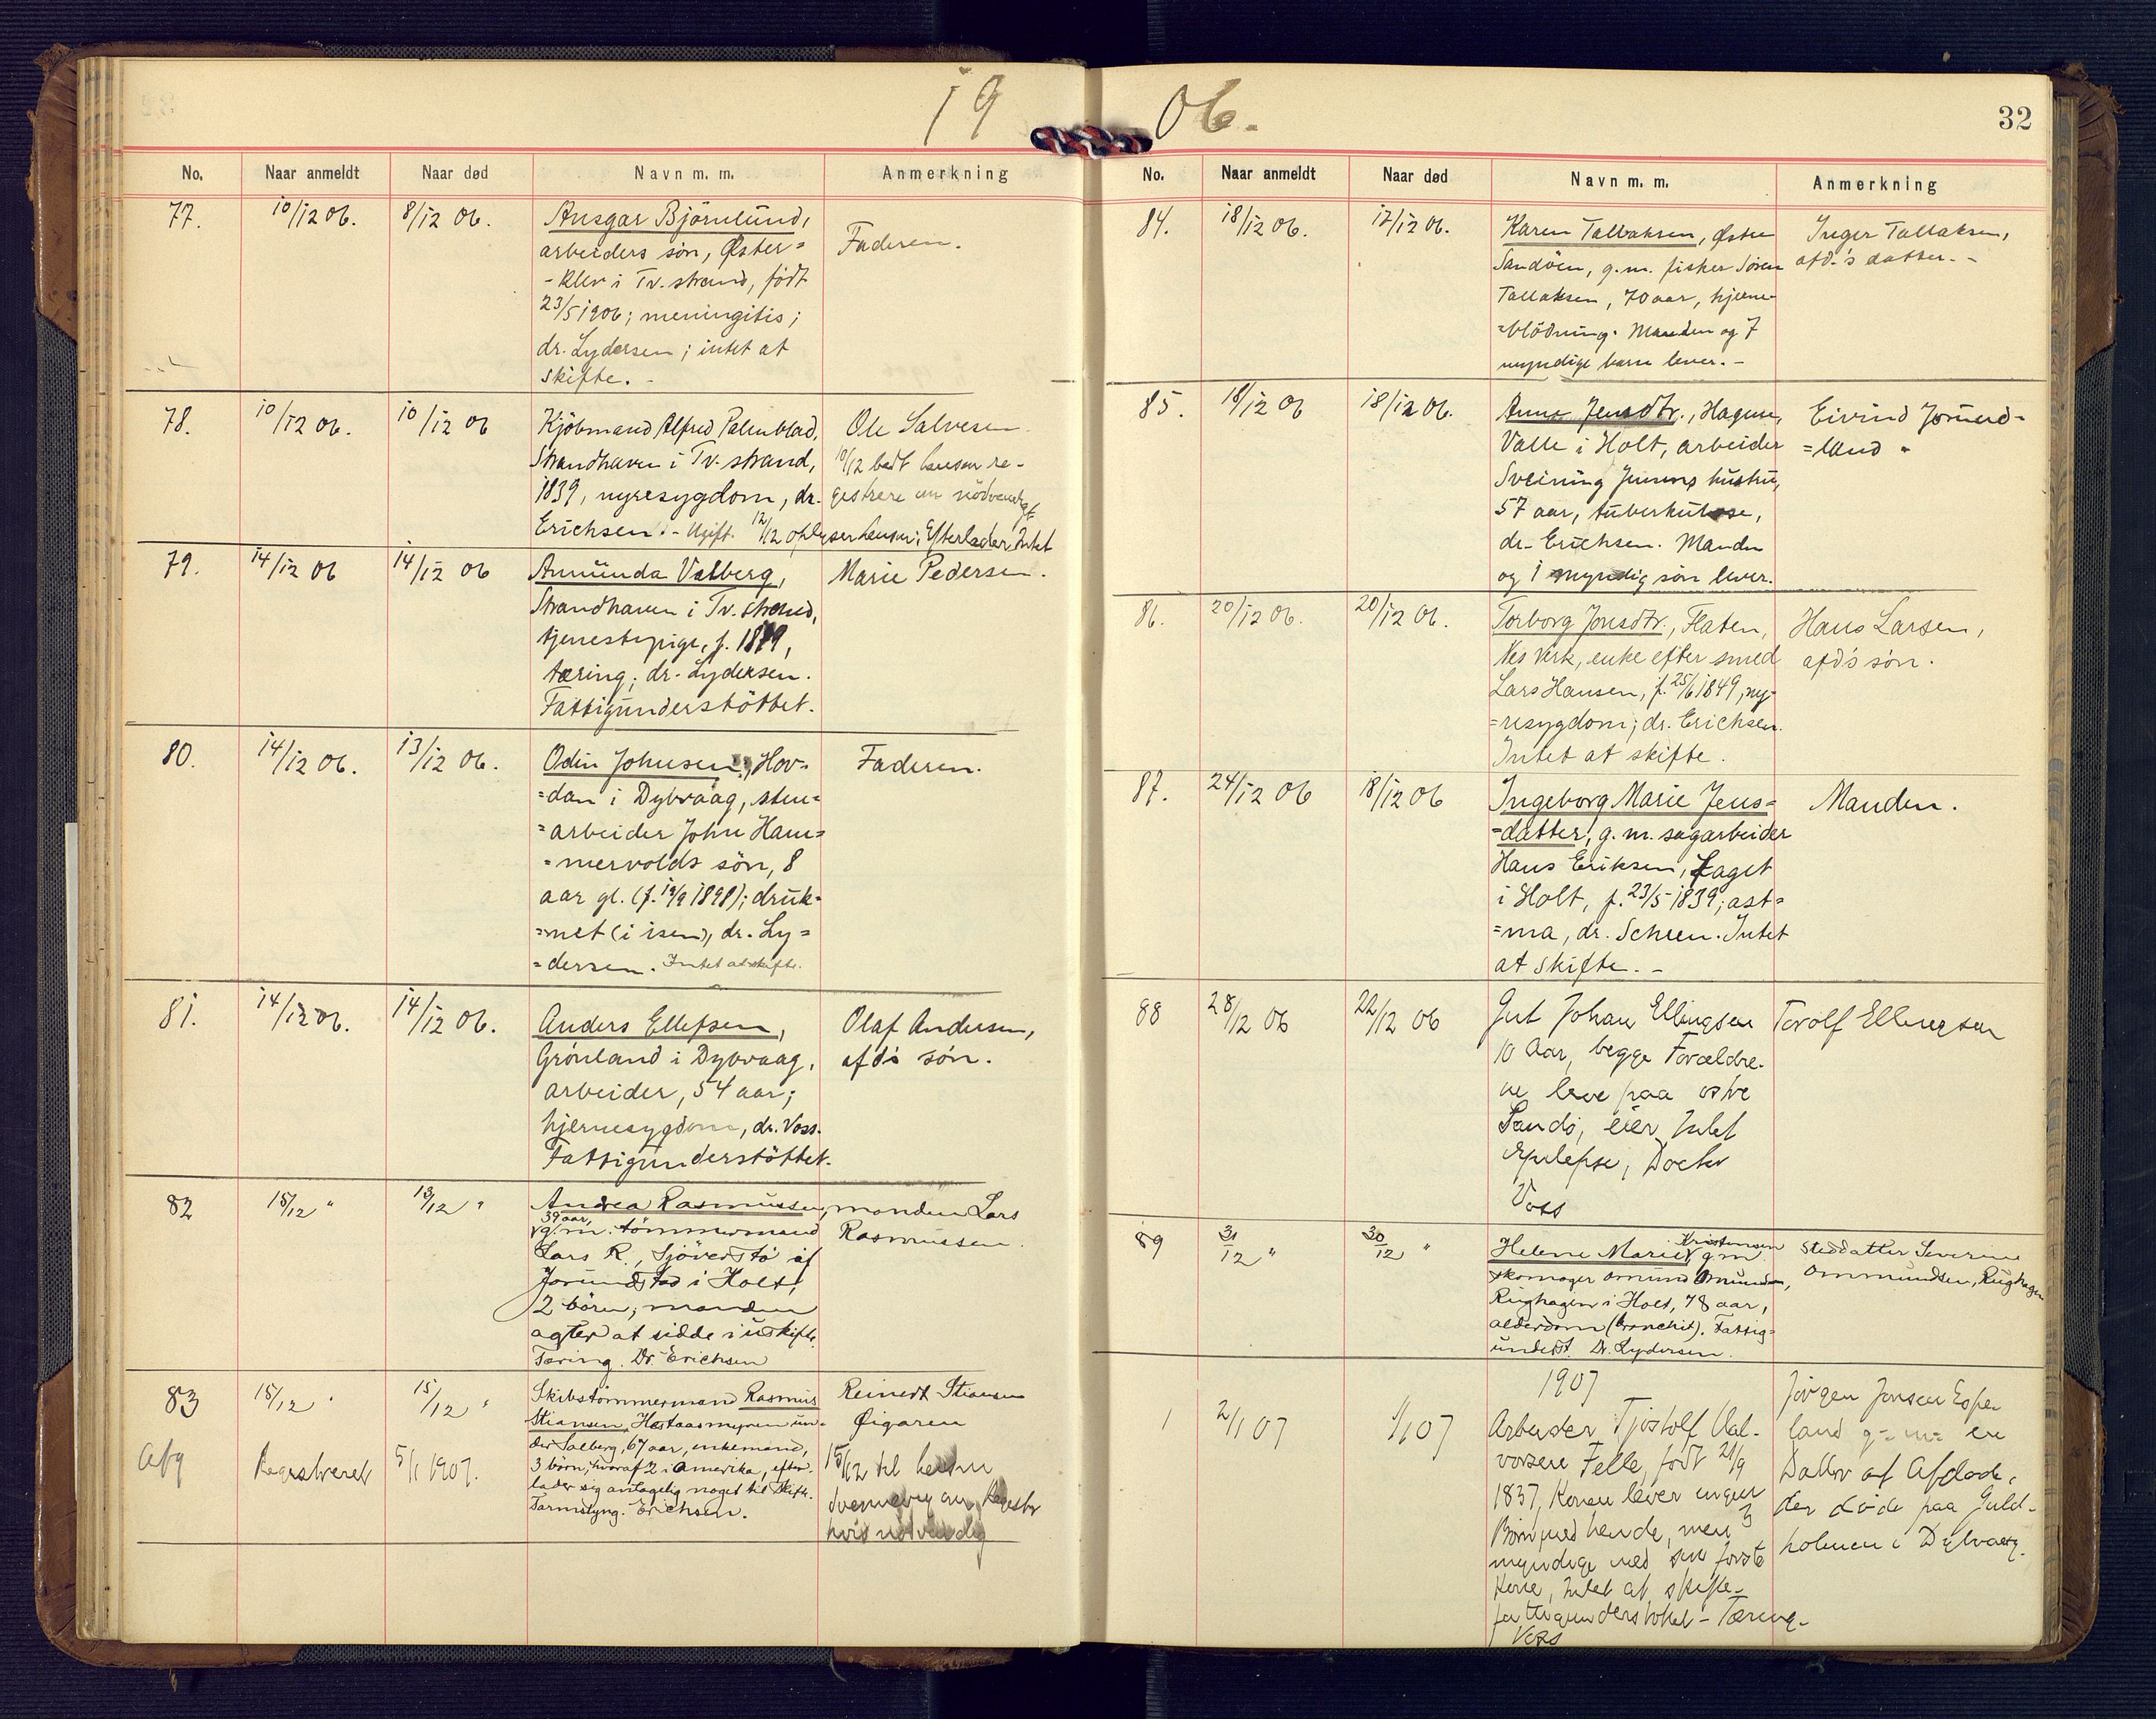 19 06.
32
No. Naar anmeldt Naar død Navn m. m. Anmerkning
77. 10/12 06. 8/12 06. Ansgar Björnlund,
arbeiders søn, Øster=
-klev i Tv.strand, født
23/5 1906; meningitis;
dr. Lydersen; intet at
skifte. -
Faderen.
78. 10/12 06. 10/12 06 Kjöbmand Alfred Palmblad,
Strandhaven i Tv.strand,
1839, nyresygdom, dr.
Erichsen. - Ugift. 12/12 oplyser Efterlader Intet
Ole Salvesen.
10/12 bedt re-
gistrere om nödvendigt
79. 14/12 06 14/12 06 Amunda Valberg,
Strandhaven i Tv.strand,
tjenestepige, f. 1879,
tæring; dr. Lydersen.
Fattigunderstöttet.
Marie Pedersen.
80. 14/12 06. 13/12 06. Odin Johnsen, Hov-
=dan i Dybvaag, sten=
=arbeider John Ham=
=mervolds sön, 8
aar gl. (f. 19/9 1898); druk=
=net (i isen), dr. Ly=
=dersen. Intet at skifte.
Faderen.
81. 14/12 06. 14/12 06. Anders Ellefsen,
Grönland i Dybvaag,
arbeider, 54 aar;
hjernesygdom, dr. Voss.
Fattigunderstöttet.
Olaf Andersen,
afd's søn.
82 15/12 " 13/12 " Andrea Rasmussen,
39 aar,
g.m. tömmermand
Lars R., Sjöverstö af
Jorundstad i Holt,
2 börn; manden
agter at sidde i uskifte.
Tæring. Dr. Erichsen
manden Lars
Rasmussen.
83 15/12 " 15/12 " Skibstömmermand Rasmus
Stiansen, Hestaasmyren un-
der Solberg, 67 aar, enkemand,
3 börn, hvoraf 2 i Amerika, efter-
lader sig antagelig noget til Skifte.
Tarmslyng. Erichsen.
Afg Registreret 5/1 1907.
Reinert Stiansen
Øigaren
15/12 til
om Registr
hvis nødvendig
No. Naar anmeldt Naar død Navn m. m. Anmerkning
84. 18/12 06. 17/12 06. Karen Tallaksen, Østre
Sandöen, g.m. fisker Sören
Tallaksen, 70 aar, hjerne-
=blödning. Manden og 7
myndige barn lever. -
Inger Tallaksen,
afd.'s datter. -
85. 18/12 06 18/12 06. Anne Jensdtr., Hagene,
Valle i Holt, arbeider
Sveinung Jennes hustru,
57 aar, tuberkulose,
dr. Erichsen. Manden
og 1 myndig sön lever.
Eivind Jorund-
=land.
86. 20/12 06. 20/12 06. Torborg Jonsdtr., Flaten,
Nes Verk, enke efter smed
Lars Hansen, f. 25/6 1849, ny-
=resygdom; dr. Erichsen.
Intet at skifte.
Hans Larsen,
afd's søn.
87. 24/12 06 18/12 06 Ingeborg Marie Jens=
=datter, g.m. sagarbeider
Hans Eriksen, Laget
i Holt, f. 23/5 1839; ast=
=ma, dr. Scheen. Intet
at skifte. -
Manden.
88 28/12 06 22/12 06 Gut Johan Ellingsen
10 Aar, begge Forældre-
ne leve paa østre
Sandö, eier Intet
Epilepse, Doctor
Voss
Torolf Ellingsen
89 31/12 " 30/12 " Helene Marie Kristensen g m
skomager Omund Omundsen,
Rughagen i Holt, 78 aar,
alderdom (bronchit). Fattig-
underst. Dr. Lydersen.
Steddatter Severine
Ommundsen, Rughagen
1907
1 2/1 07 1/1 07 Arbeider Tjostolf Hal-
vorsen Felle, født 21/9
1837, Konen lever ingen
Børn med hende, men 3
myndige med sin første
Kone, Intet at skifte -
fattigunderstøttet - Tæring -
Voss
Jörgen Jensen Espe
land g=m= en
Datter af Afdøde,
der døde paa Guld-
holmen i Dybvaag.